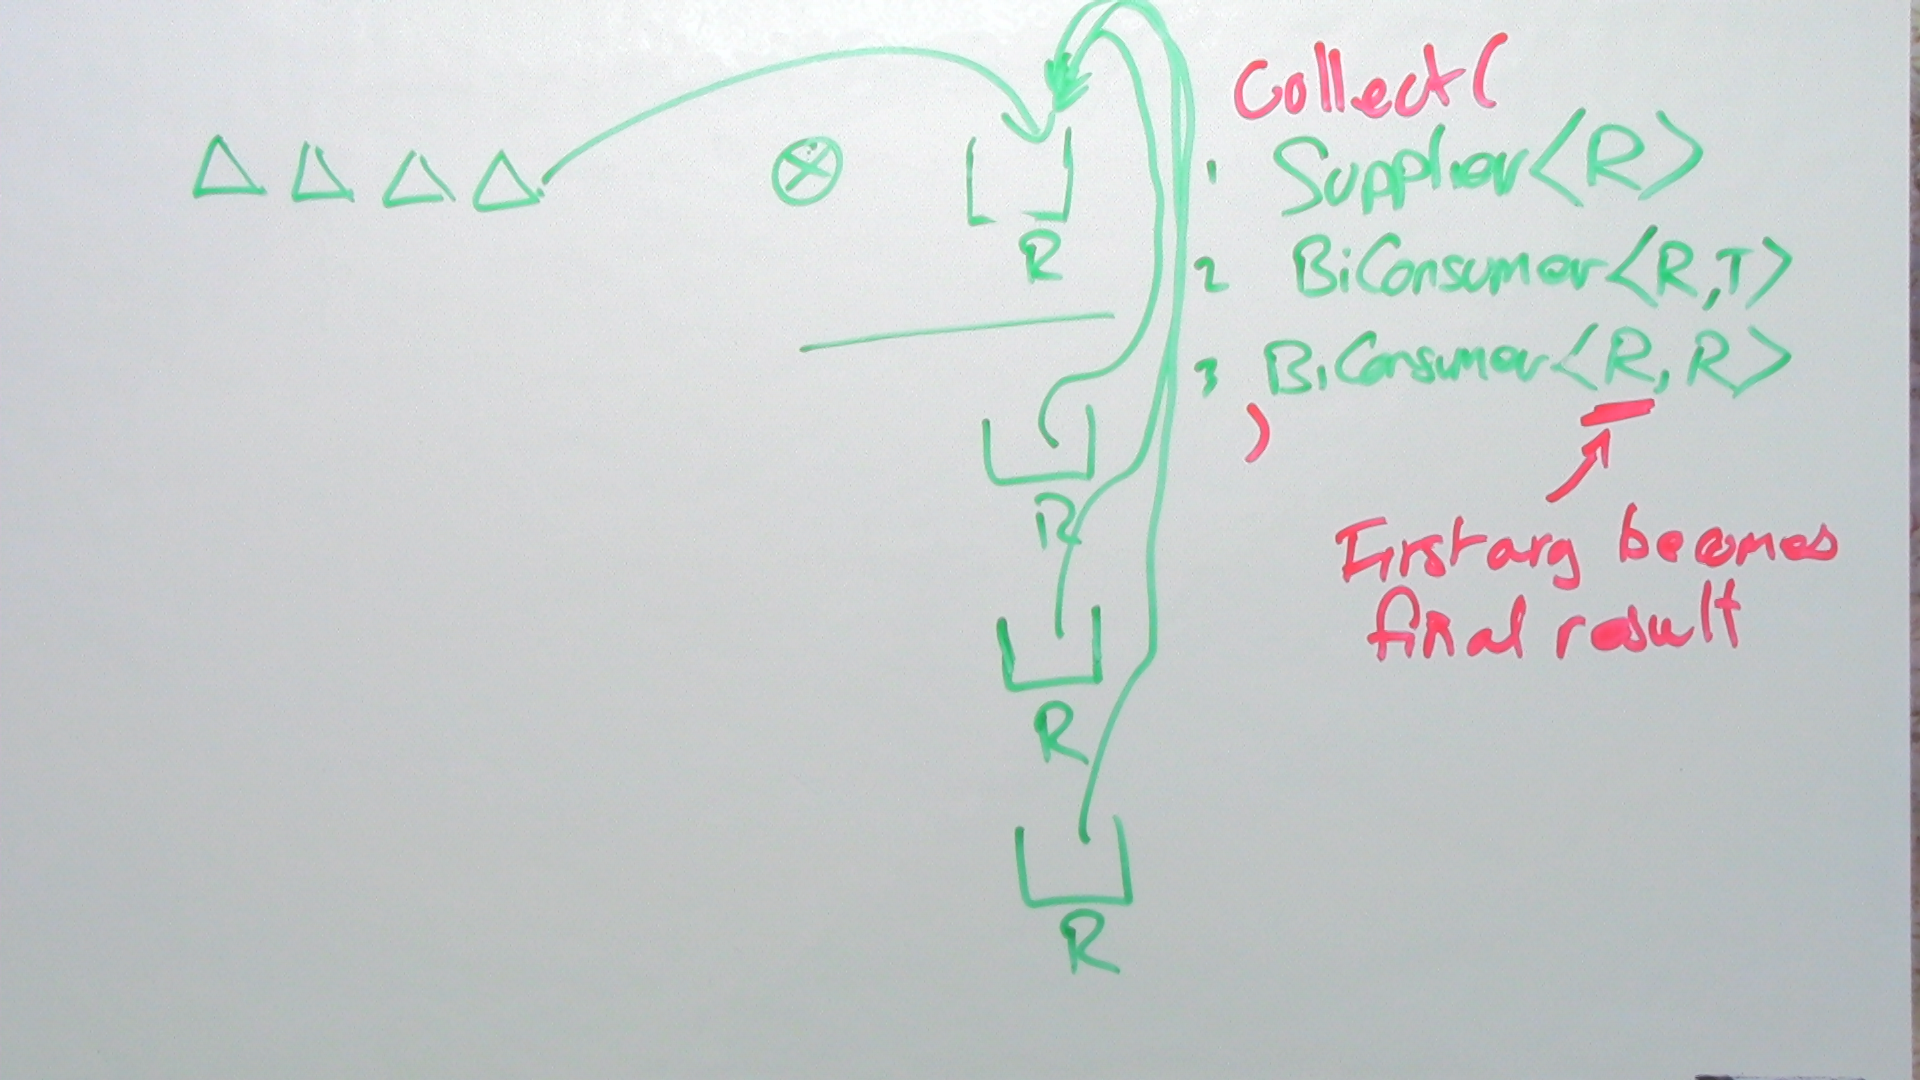 Collect(
1 Supplier<R>
2 BiConsumer<R,T>
3 BiConsumer<R, R>
)
First arg becomes
final result
R
R
R
R